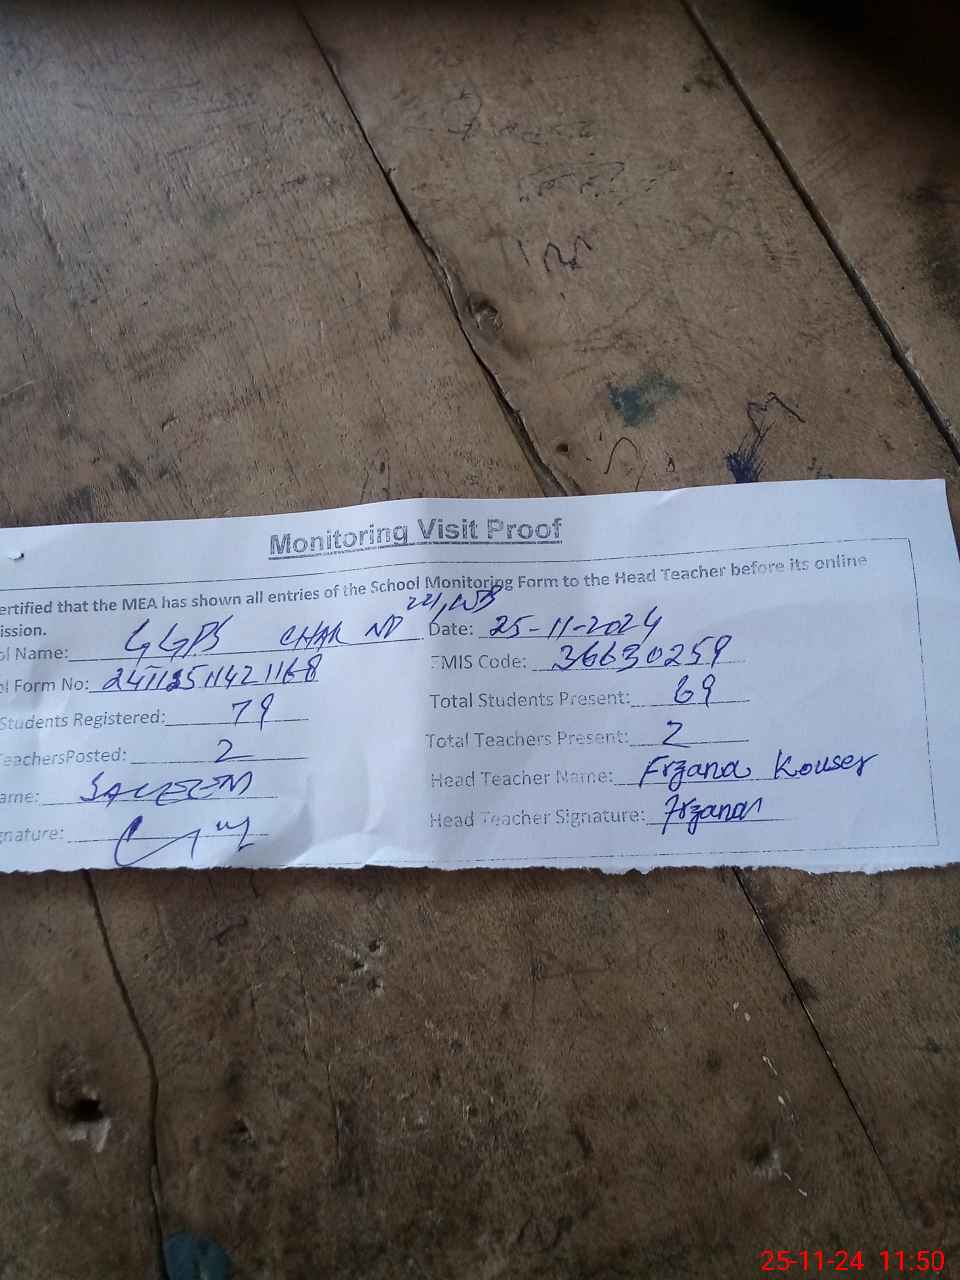 Monitoring Visit Proof
ertified that the MEA has shown all entries of the School Monitoring Form to the Head Teacher before its online
ission.
ol Name: GGPS CHAK NO 221, WB Date: 25-11-2024
ol Form No: EMIS Code: 36630259
Students Registered: 79 Total Students Present: 69
TeachersPosted: 2 Total Teachers Present: 2
ame: SALEEM Head Teacher Name: Frzana Kouser
gnature: Head Teacher Signature: Frzana
25-11-24 11:50